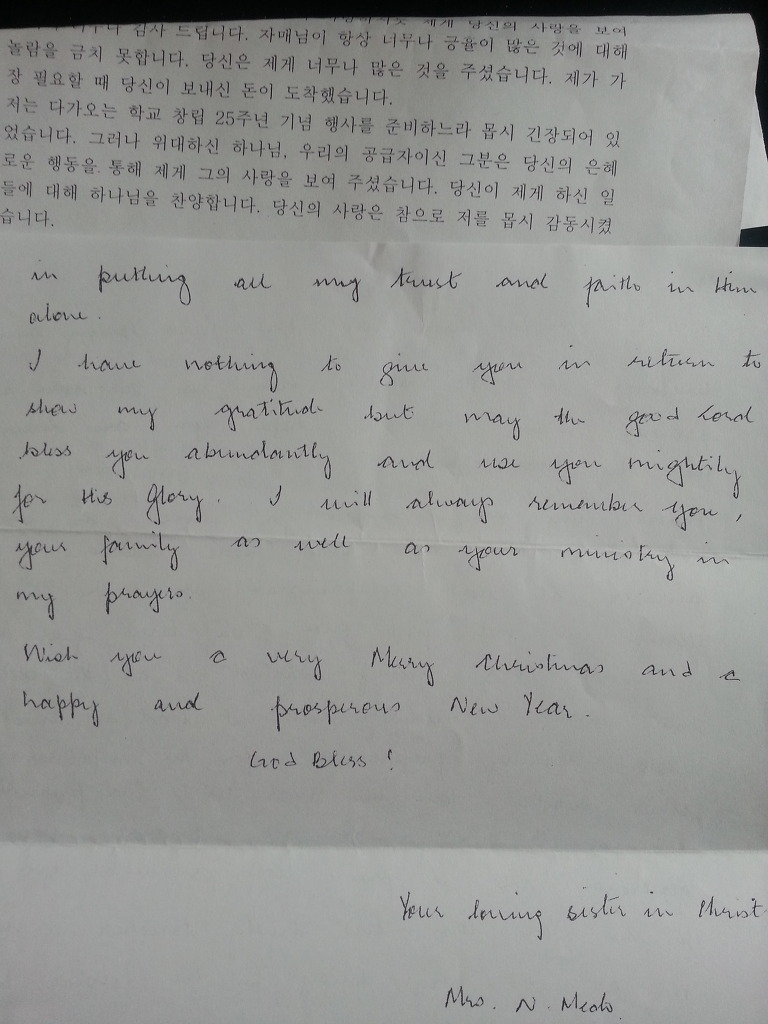 감사 드립니다. 자매님이 항상 너무나 긍율이 많은 것에 대해
놀람을 금치 못합니다. 당신은 제게 너무나 많은 것을 주셨습니다. 제가 가
장 필요할 때 당신이 보내신 돈이 도착했습니다.
저는 다가오는 학교 창립 25주년 기념 행사를 준비하느라 몹시 긴장되어 있
었습니다. 그러나 위대하신 하나님, 우리의 공급자이신 그분은 당신의 은혜
로운 행동을 통해 제게 그의 사랑을 보여 주셨습니다. 당신이 제게 하신 일
들에 대해 하나님을 찬양합니다. 당신의 사랑은 참으로 저를 몹시 감동시켰
습니다.
in putting all my trust and faith in Him
alone.
I have nothing to give you in return to
show my gratitude but may the good Lord
bless you abundantly and use you mightily
for His Glory. I will always remember you,
your family as well as your ministry in
my prayers.
Wish you a very Merry Christmas and a
happy and prosperous New Year.
God Bless!
Your loving sister in Christ
Mrs. N.